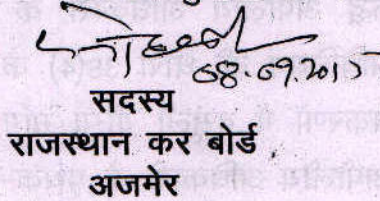 08.09.2015
सदस्य
राजस्थान कर बोर्ड,
अजमेर